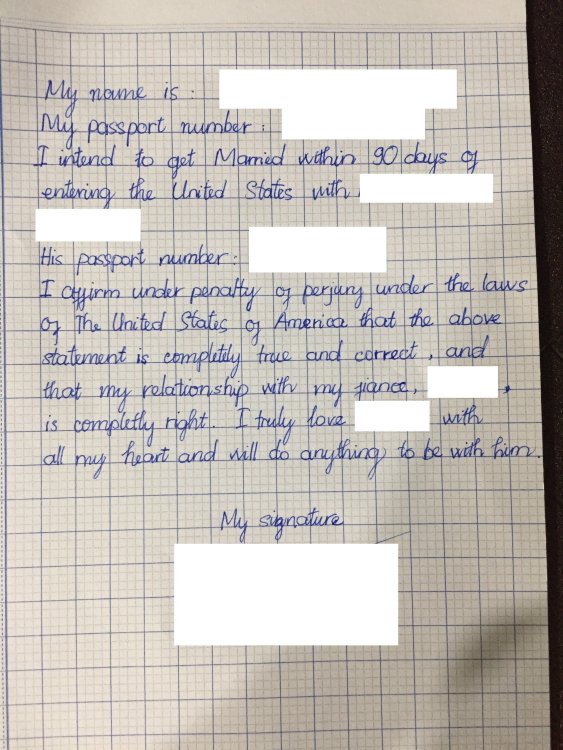 My name is :
My passport number :
I intend to get Married within 90 days of
entering the United States with
His passport number :
I affirm under penalty of perjury under the laws
of The United States of America that the above
statement is completily true and correct, and
that my relationship with my fiance, ,
is completly right. I truly love with
all my heart and will do anything to be with him.
My signature